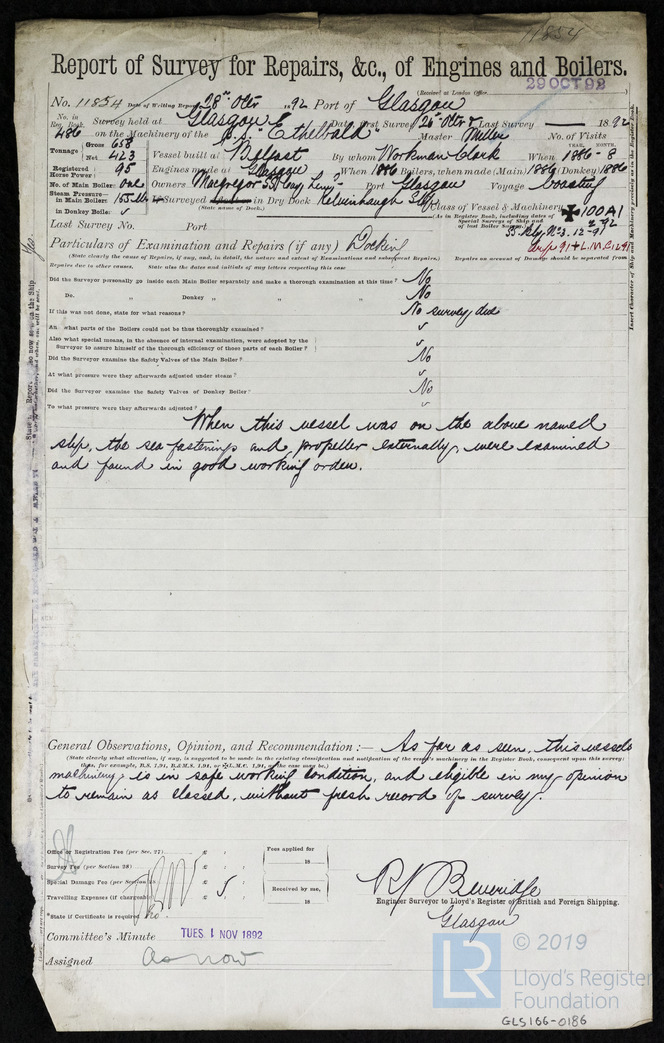 11854
Report of Survey for Repairs, &c., of Engines and Boilers.
(Received at London Office
29 OCT 92
No. 11854 Date of Writing Report 28th Octr 1892 Port of Glasgow
No. in Reg. Book 486 Survey held at Glasgow Date, First Survey 25th Octr Last Survey — 1892
on the Machinery of the S.S. "Ethelbald" Master Miller No. of Visits
Tonnage Gross 658 Net 423 Vessel built at Belfast By whom Workman Clark When 1886-8 YEAR. MONTH.
Registered Horse Power 95 Engines made at Glasgow When 1886 Boilers, when made (Main) 1886 (Donkey) 1886
No. of Main Boiler One Owners Port Glasgow Voyage Coasting
Steam Pressure in Main Boiler 155 lbs If Surveyed in Dry Dock Kelvinhaugh Slip
(State name of Dock.)
in Donkey Boiler ✓
Class of Vessel & Machinery ✠100A1
As in Register Book, including dates of Special Surveys of Ship and of last Boiler Survey
Last Survey No. Port
Particulars of Examination and Repairs (if any) Docking
(State clearly the cause of Repairs, if any, and, in detail, the nature and extent of Examinations and subsequent Repairs.) Repairs on account of Damage should be separated from
Repairs due to other causes. State also the dates and initials of any letters respecting this case
Did the Surveyor personally go inside each Main Boiler separately and make a thorough examination at this time? No
Do. " Donkey " " " No
If this was not done, state for what reasons? No survey due
what parts of the Boilers could not be thus thoroughly examined? ✓
Also what special means, in the absence of internal examination, were adopted by the
Surveyor to assure himself of the thorough efficiency of those parts of each Boiler? ✓
Did the Surveyor examine the Safety Valves of the Main Boiler? No
At what pressure were they afterwards adjusted under steam? ✓
Did the Surveyor examine the Safety Valves of Donkey Boiler? No
To what pressure were they afterwards adjusted? ✓
When this vessel was on the above named
slip, the sea fastenings and propeller externally, were examined
and found in good working order.
General Observations, Opinion, and Recommendation :— As far as seen, this vessels
(State clearly what alteration, if any, is suggested to be made in the existing classification and notification of the vessel's machinery in the Register Book, consequent upon this survey:
thus, for example, B.S. 1.91, B.&M.S. 1.91, or ✠L.M.C. 1.91, as the case may be.)
machinery, is in safe working condition, and eligible in my opinion
to remain as classed, without fresh record of survey.
Office or Registration Fee (per Sec. 27) £ : :
Survey Fee (per Section 28) £ : :
Special Damage Fee (per Section £ : :
Travelling Expenses (if chargeable) £ : :
Fees applied for 18
Received by me, 18
State if Certificate is required No
R J Beveridge
Engineer Surveyor to Lloyd's Register of British and Foreign Shipping.
Glasgow
Committee's Minute TUES. 1 NOV 1892
Assigned as now
LR © 2019
Lloyd's Register
Foundation
GLS166-0186